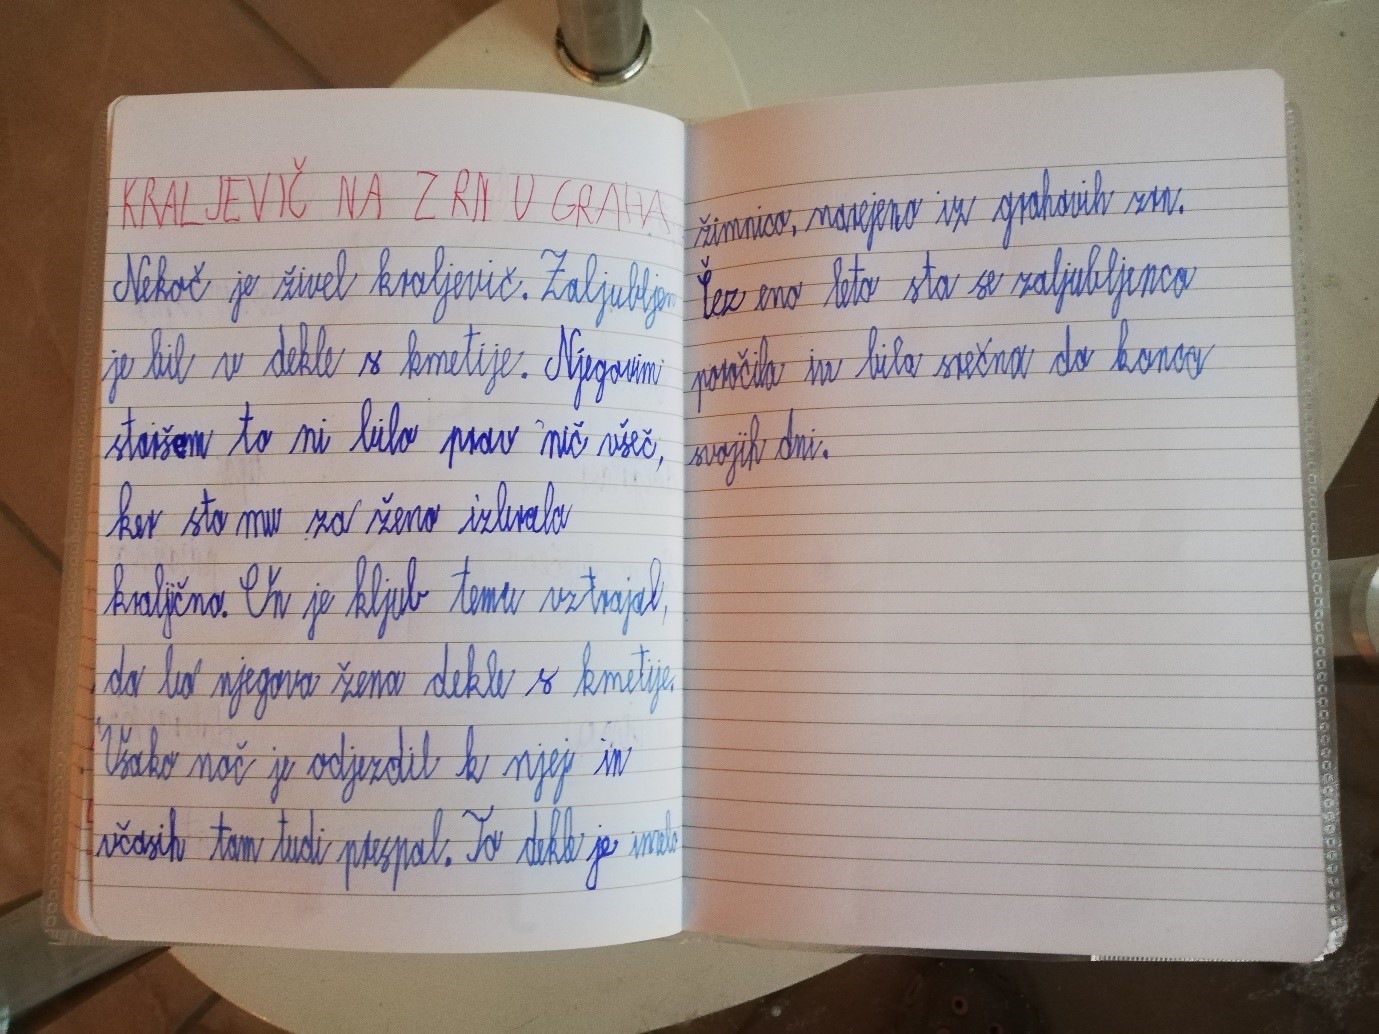 KRALJEVIČ NA ZRNU GRAHA
Nekoč je živel kraljevič. Zaljubljen
je bil v dekle s kmetije. Njegovim
staršem to ni bilo prav nič všeč,
ker sta mu za ženo izbrala
kraljično. On je kljub temu vztrajal,
da bo njegova žena dekle s kmetije.
Vsako noč je odjezdil k njej in
včasih tam tudi prespal. To dekle je imelo
žimnico, narejeno iz grahovih zrn.
Čez eno leto sta se zaljubljenca
poročila in bila srečna do konca
svojih dni.